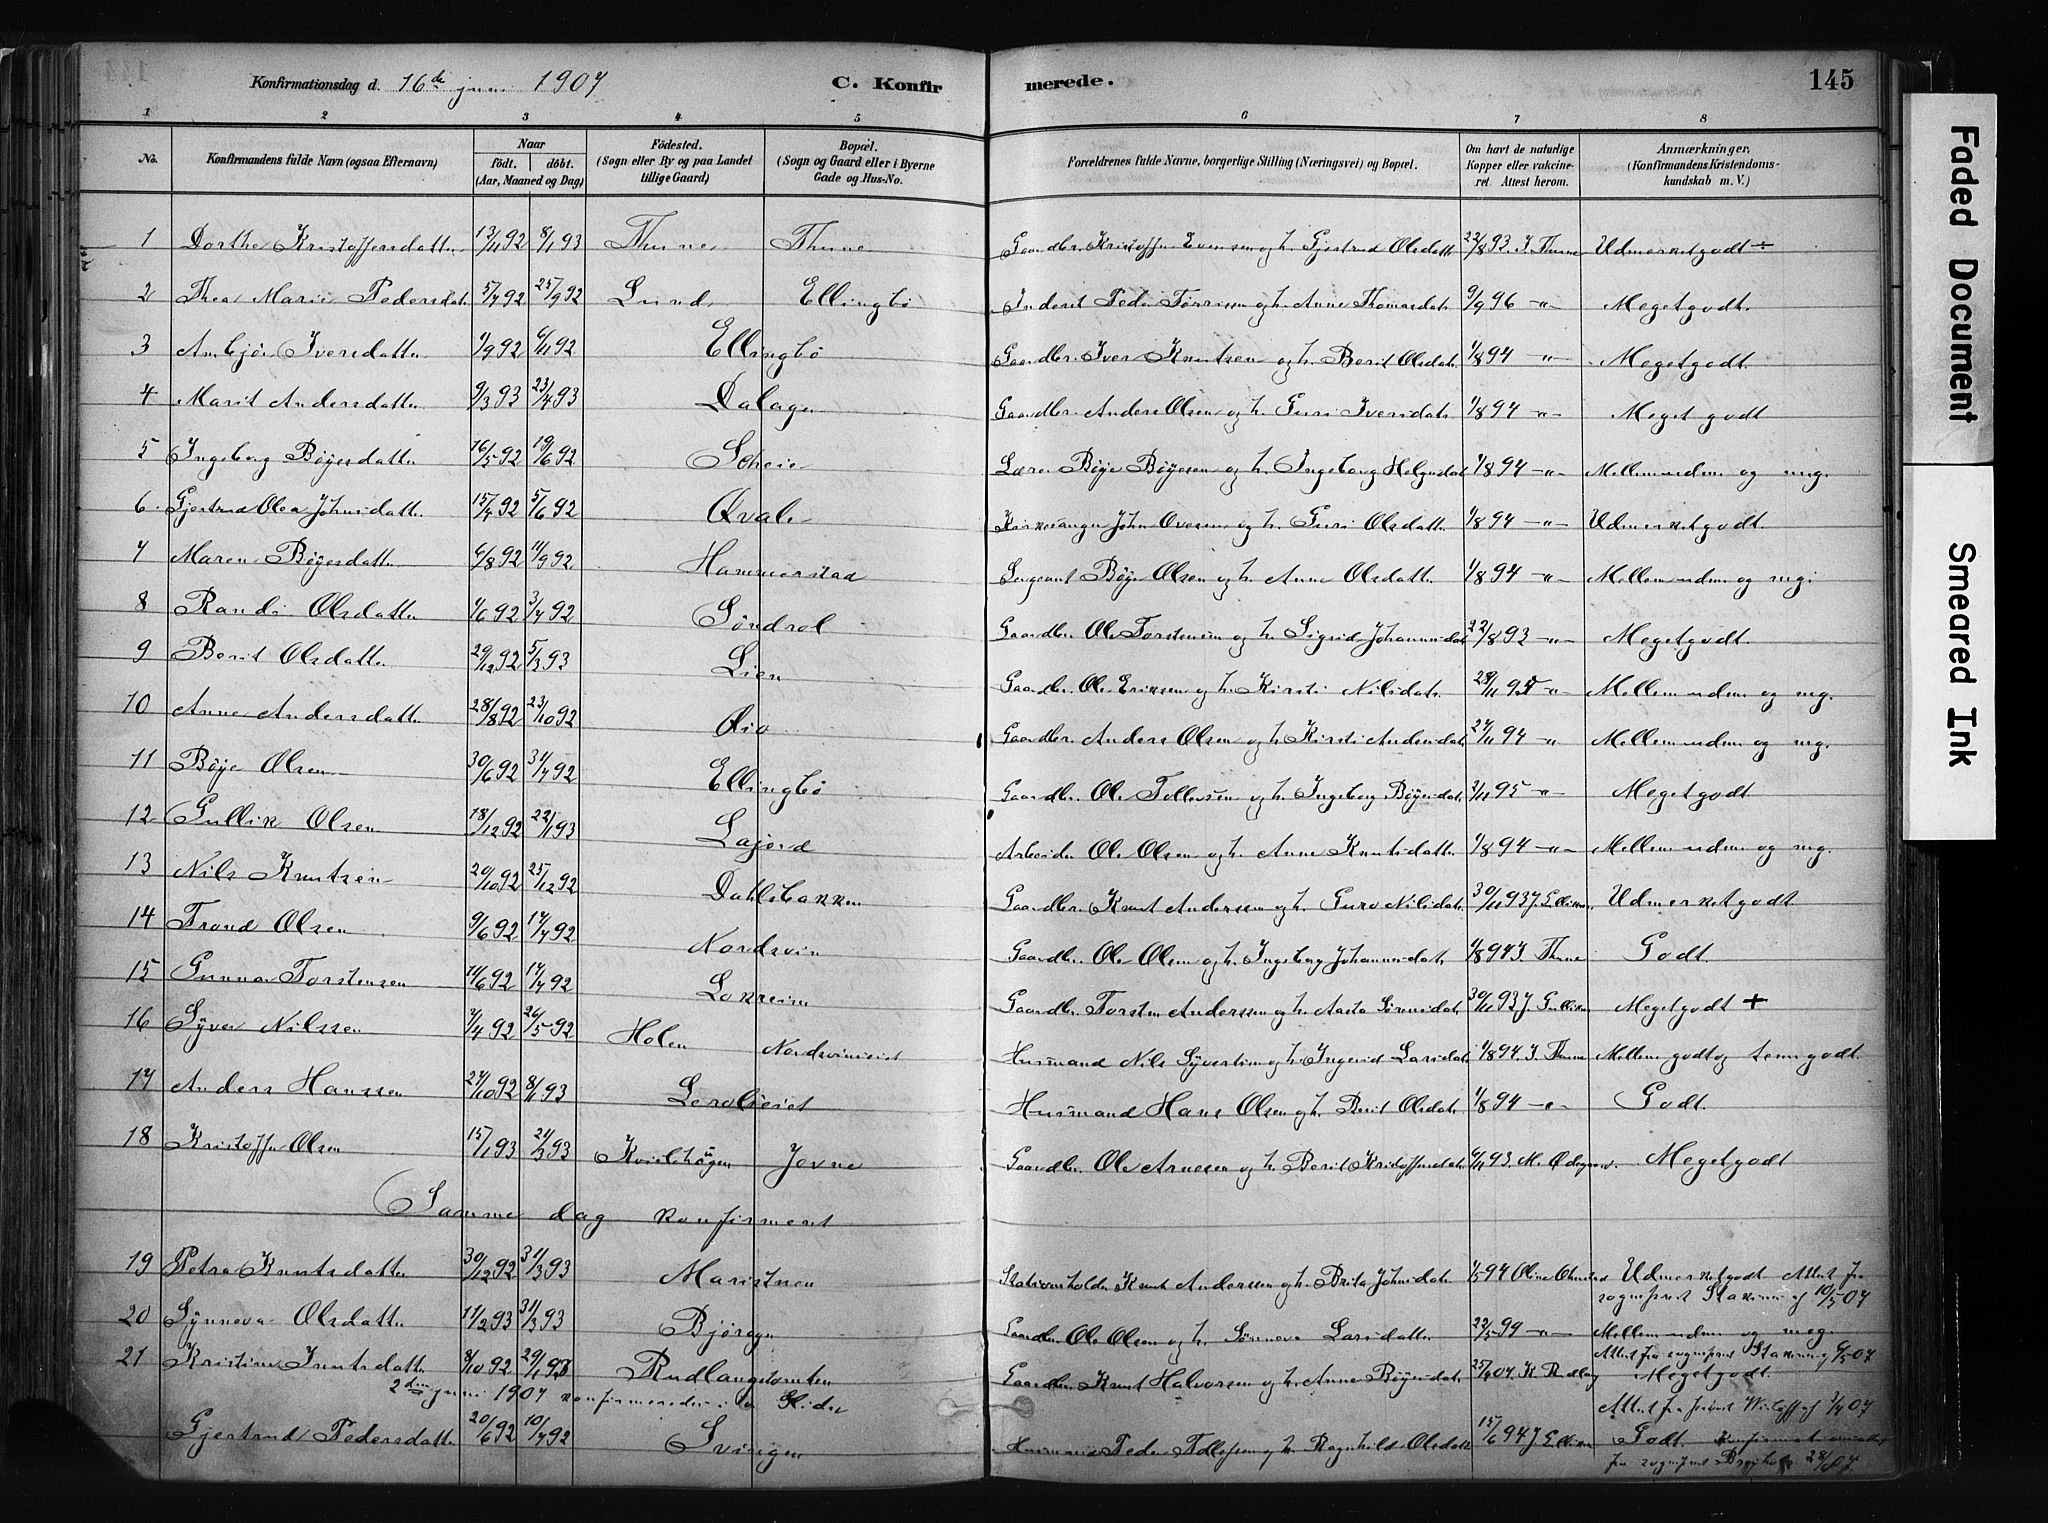 Konfirmationsdag d. 16de juni 1907
C. Konfirmerede.
145
1 2 3 4 5 6 7 8
No.
Konfirmandens fulde Navn (ogsaa Efternavn)
Naar
født. døbt.
(Aar, Maaned og Dag)
Födested.
(Sogn eller By og paa Landet tillige Gaard)
Bopæl.
(Sogn og Gaard eller i Byerne Gade og Hus-No.
Forældrenes fulde Navne, borgerlige Stilling (Næringsvei) og Bopæl.
Om havt de naturlige Kopper eller vakcineret Attest herom.
Anmærkninger.
(Konfirmandens Kristendomskundskab m. V.)
1 Dorthe Kristoffersdatter 13/11 92 8/1 93 Thune Thune Gaardbr. Kristoffer Evensen og h. Gjertrud Olsdatter 22/8 93. J. Thune Udmerketgodt ÷
2 Thea Marie Pedersdat. 5/7 92 25/9 92 Lund Ellingbø Inderst Peder Tørrisen og h. Anne Thomasdat. 9/9 96 -"- Megetgodt.
3 Anbjør Iversdatter 1/9 92 6/11 92 Ellingbø Gaardbr. Iver Knutsen og h. Berit Olsdat. 1/8 94 -"- Megetgodt.
4 Marit Andersdatter 9/3 93 23/4 93 Dalagen Gaardbr. Anders Olsen og h. Guri Iversdat. 1/8 94 -"- Meget godt
5 Ingeborg Bøyesdatter 16/5 92 19/6 92 Scheie Lærer Bøye Bøyesen og h. Ingeborg Helgesdat. 1/8 94 -"- Mellem udm og mg.
6 Gjertrud Olea Johnsdatter 15/4 92 5/6 92 Qvale Kirkesanger John Ovesen og h. Guri Olsdatter 1/8 94 -"- Udmerketgodt
7 Maren Bøyesdatter 6/8 92 11/9 92 Hammerstad Sergeant Bøye Olsen og h. Anne Olsdatter 1/8 94 -"- Mellem udm og mg.
8 Randi Olsdatter 1/6 92 3/7 92 Søndrol Gaardbr. Ole Torstensen og h. Sigrid Johannesdat. 22/8 93 -"- Megetgodt.
9 Berit Olsdatter 29/12 92 5/3 93 Lien Gaardbr. Ole Eriksen og h. Kirsti Nilsdat. 28/11 95 -"- Mellem udm og mg.
10 Anne Andersdatter 28/8 92 23/10 92 Øio Gaardbr. Anders Olsen og h. Kirsti Andersdat. 27/11 94 -"- Mellem udm og mg.
11 Bøye Olsen 30/6 92 31/7 92 Ellingbø Gaardbr. Ole Tollevsen og h. Ingeborg Bøyesdat. 2/11 95 -"- Megetgodt
12 Gullik Olsen 18/12 92 22/1 93 Lajord Arbeider Ole Olsen og h. Anne Knutsdatter 1/8 94 -"- Mellem udm og mg.
13 Nils Knutsen 20/10 92 25/12 92 Dahlsbakken Gaardbr. Knut Anderssen og h. Guro Nilsdat. 30/11 93 Udmerketgodt
14 Trond Olsen 9/6 92 17/7 92 Nordsvin Gaardbr. Ole Olsen og h. Ingeborg Johannesdat. 1/8 94 J. Thune Godt.
15 Gunnar Torstensen 11/6 92 17/7 92 Lokreim Gaardbr. Torsten Anderssen og h. Aasta Sørensdat. 30/11 93 Megetgodt +
16 Syver Nilssen 2/4 92 26/5 92 Holen Nordsvinseiet Husmand Nils Syvertsen og h. Ingerid Larsdat. 1/8 94. J. Thune Mellem godt og temgodt.
17 Anders Hanssen 27/10 92 8/1 93 Leroleiet Husmand Hans Olsen og h. Berit Olsdat. 1/8 94 -"- Godt.
18 Kristoffer Olsen 15/1 93 21/3 93 Kvislehögen Jevne Gaardbr. Ole Arnesen og h. Berit Kristoffersdat. 6/11 93. M. Ødegaard. Megetgodt
Samme dag konfirmert
19 Petra Knutsdatter 30/12 92 31/3 93 Maristuen Stationsholder Knut Anderssen og h. Brita Johnsdat. 1/5 94 Udmerketgodt Attest fra
sogneprest Staxrun af 10/5 07
20 Synneva Olsdatter 11/2 93 31/3 93 Bjørager Gaardbr. Ole Olsen og h. Sønneva Larsdatter 22/5 99 -"- Mellem udm og meg.
Attest fra sogneprest 6/5 07
21 Kristine Knutsdatter 8/10 92 29/1 93 Rudlangstomten Gaardbr. Knut Halvorsen og h. Anne Bøyesdat. 25/1 04. Megetgodt.
2den juni 1907 konfirmeredes i v. Slidre
Attest fra prest af 3/7 07
Gjertrud Pedersdatter 20/6 92 10/7 92 Svingen Peder og h. Ragnhild Olsdat. 15/6 94 Godt. Konfirmert
fra sogneprest 28/
Faded Document
Smeared Ink